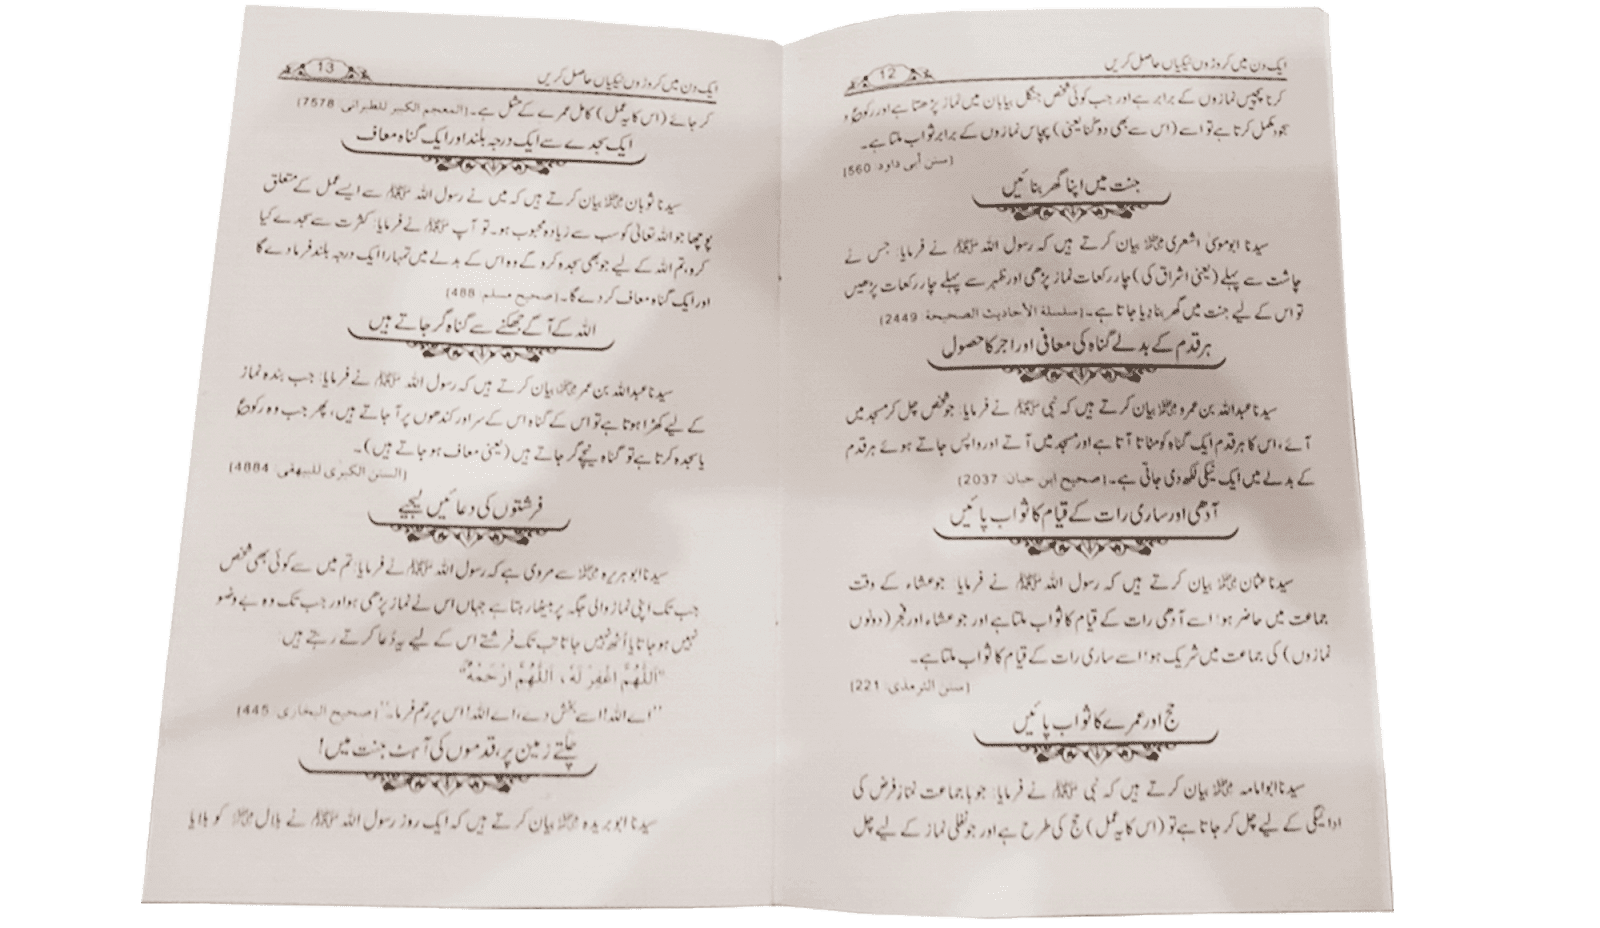 ایک دن میں کروڑوں نیکیاں حاصل کریں
12
کرنا پچیس نمازوں کے برابر ہے اور جب کوئی شخص جنگل بیابان میں نماز پڑھتا ہے اور رکوع و
سجود مکمل کرتا ہے تو اسے (اس سے بھی دوگنا یعنی) پچاس نمازوں کے برابر ثواب ملتا ہے۔
[سنن أبی داود: 560]
جنت میں اپنا گھر بنائیں
سیدنا ابو موسیٰ اشعری رضی اللہ عنہ بیان کرتے ہیں کہ رسول اللہ ﷺ نے فرمایا: جس نے
چاشت سے پہلے (یعنی اشراق کی) چار رکعات نماز پڑھی اور ظہر سے پہلے چار رکعات پڑھیں
تو اس کے لیے جنت میں گھر بنا دیا جاتا ہے۔ [سلسلة الأحاديث الصحيحة: 2449]
ہر قدم کے بدلے گناہ کی معافی اور اجر کا حصول
سیدنا عبداللہ بن عمرو رضی اللہ عنہ بیان کرتے ہیں کہ نبی ﷺ نے فرمایا: جو شخص چل کر مسجد میں
آئے، اس کا ہر قدم ایک گناہ کو مٹاتا آتا ہے اور مسجد میں آتے اور واپس جاتے ہوئے ہر قدم
کے بدلے میں ایک نیکی لکھ دی جاتی ہے۔ [صحیح ابن حبان: 2037]
آدھی اور ساری رات کے قیام کا ثواب پائیں
سیدنا عثمان رضی اللہ عنہ بیان کرتے ہیں کہ رسول اللہ ﷺ نے فرمایا: جو عشاء کے وقت
جماعت میں حاضر ہو؛ اسے آدھی رات کے قیام کا ثواب ملتا ہے اور جو عشاء اور فجر (دونوں
نمازوں) کی جماعت میں شریک ہو؛ اسے ساری رات کے قیام کا ثواب ملتا ہے۔
[سنن الترمذی: 221]
حج اور عمرے کا ثواب پائیں
سیدنا ابوامامہ رضی اللہ عنہ بیان کرتے ہیں کہ نبی ﷺ نے فرمایا: جو باجماعت نماز فرض کی
ادائیگی کے لیے چل کر جاتا ہے تو (اس کا یہ عمل) حج کی طرح ہے اور جو نفلی نماز کے لیے چل
ایک دن میں کروڑوں نیکیاں حاصل کریں
13
کر جائے (اس کا یہ عمل) کامل عمرے کے مثل ہے۔ [المعجم الکبیر للطبرانی: 7578]
ایک سجدے سے ایک درجہ بلند اور ایک گناہ معاف
سیدنا ثوبان رضی اللہ عنہ بیان کرتے ہیں کہ میں نے رسول اللہ ﷺ سے ایسے عمل کے متعلق
پوچھا جو اللہ تعالیٰ کو سب سے زیادہ محبوب ہو۔ تو آپ ﷺ نے فرمایا: کثرت سے سجدے کیا
کرو، تم اللہ کے لیے جو بھی سجدہ کرو گے وہ اس کے بدلے میں تمہارا ایک درجہ بلند فرما دے گا
اور ایک گناہ معاف کر دے گا۔ [صحیح مسلم: 488]
اللہ کے آگے جھکنے سے گناہ گر جاتے ہیں
سیدنا عبداللہ بن عمر رضی اللہ عنہ بیان کرتے ہیں کہ رسول اللہ ﷺ نے فرمایا: جب بندہ نماز
کے لیے کھڑا ہوتا ہے تو اس کے گناہ اس کے سر اور کندھوں پر آ جاتے ہیں، پھر جب وہ رکوع
یا سجدہ کرتا ہے تو گناہ نیچے گر جاتے ہیں (یعنی معاف ہو جاتے ہیں)۔
[السنن الکبری للبیهقی: 4884]
فرشتوں کی دعائیں لیجیے
سیدنا ابو ہریرہ رضی اللہ عنہ سے مروی ہے کہ رسول اللہ ﷺ نے فرمایا: تم میں سے کوئی بھی شخص
جب تک اپنی نماز والی جگہ پر بیٹھا رہتا ہے جہاں اس نے نماز پڑھی ہو اور جب تک وہ بے وضو
نہیں ہو جاتا یا اُٹھ نہیں جاتا تب تک فرشتے اس کے لیے یہ دُعا کرتے رہتے ہیں:
”اَللّٰهُمَّ اغْفِرْ لَهٗ، اَللّٰهُمَّ ارْحَمْهُ“
’’اے اللہ! اسے بخش دے، اے اللہ! اس پر رحم فرما۔‘‘ [صحیح البخاری: 445]
چلتے زمین پر، قدموں کی آہٹ جنت میں!
سیدنا ابو بریدہ رضی اللہ عنہ بیان کرتے ہیں کہ ایک روز رسول اللہ ﷺ نے بلال رضی اللہ عنہ کو بلایا